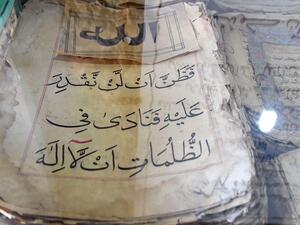 الله
فَظَنَّ اَنْ لَنْ نَّقْدِرَ
عَلَيْهِ فَنَادَىٰ فِي
الظُّلُمَاتِ اَنْ لَّا اِلٰهَ